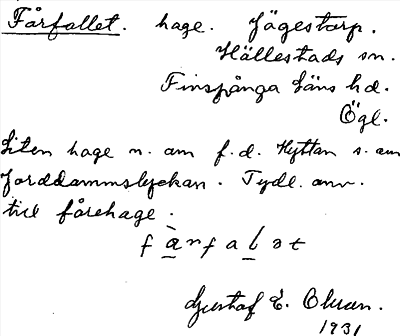 Fårfallet. hage. Jägestorp.
Hällestads sn.
Finspånga läns hd.
Ögl.
Liten hage n. om f.d. Hyttan s. om
Jorddammslyckan. Tydl. anv.
till fårehage.
Gustaf E. Olsson.
1931